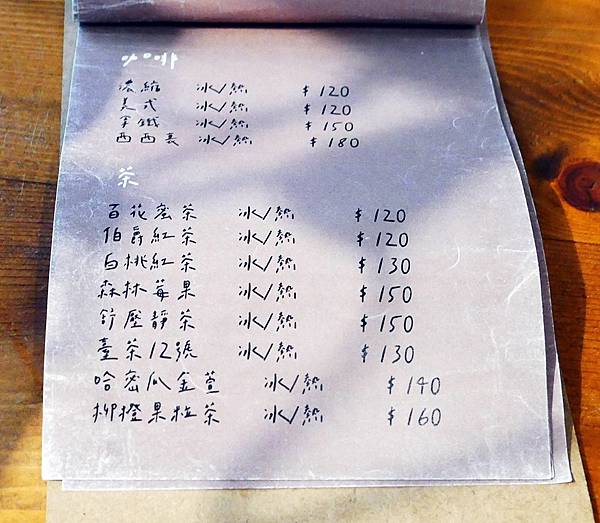 咖啡
濃縮 冰/熱 $120
美式 冰/熱 $120
拿鐵 冰/熱 $150
西西里 冰/熱 $180
茶
百花蜜茶 冰/熱 $120
伯爵紅茶 冰/熱 $120
白桃紅茶 冰/熱 $130
森林莓果 冰/熱 $150
舒壓靜茶 冰/熱 $150
臺茶12號 冰/熱 $130
哈密瓜金萱 冰/熱 $140
柳橙果粒茶 冰/熱 $160